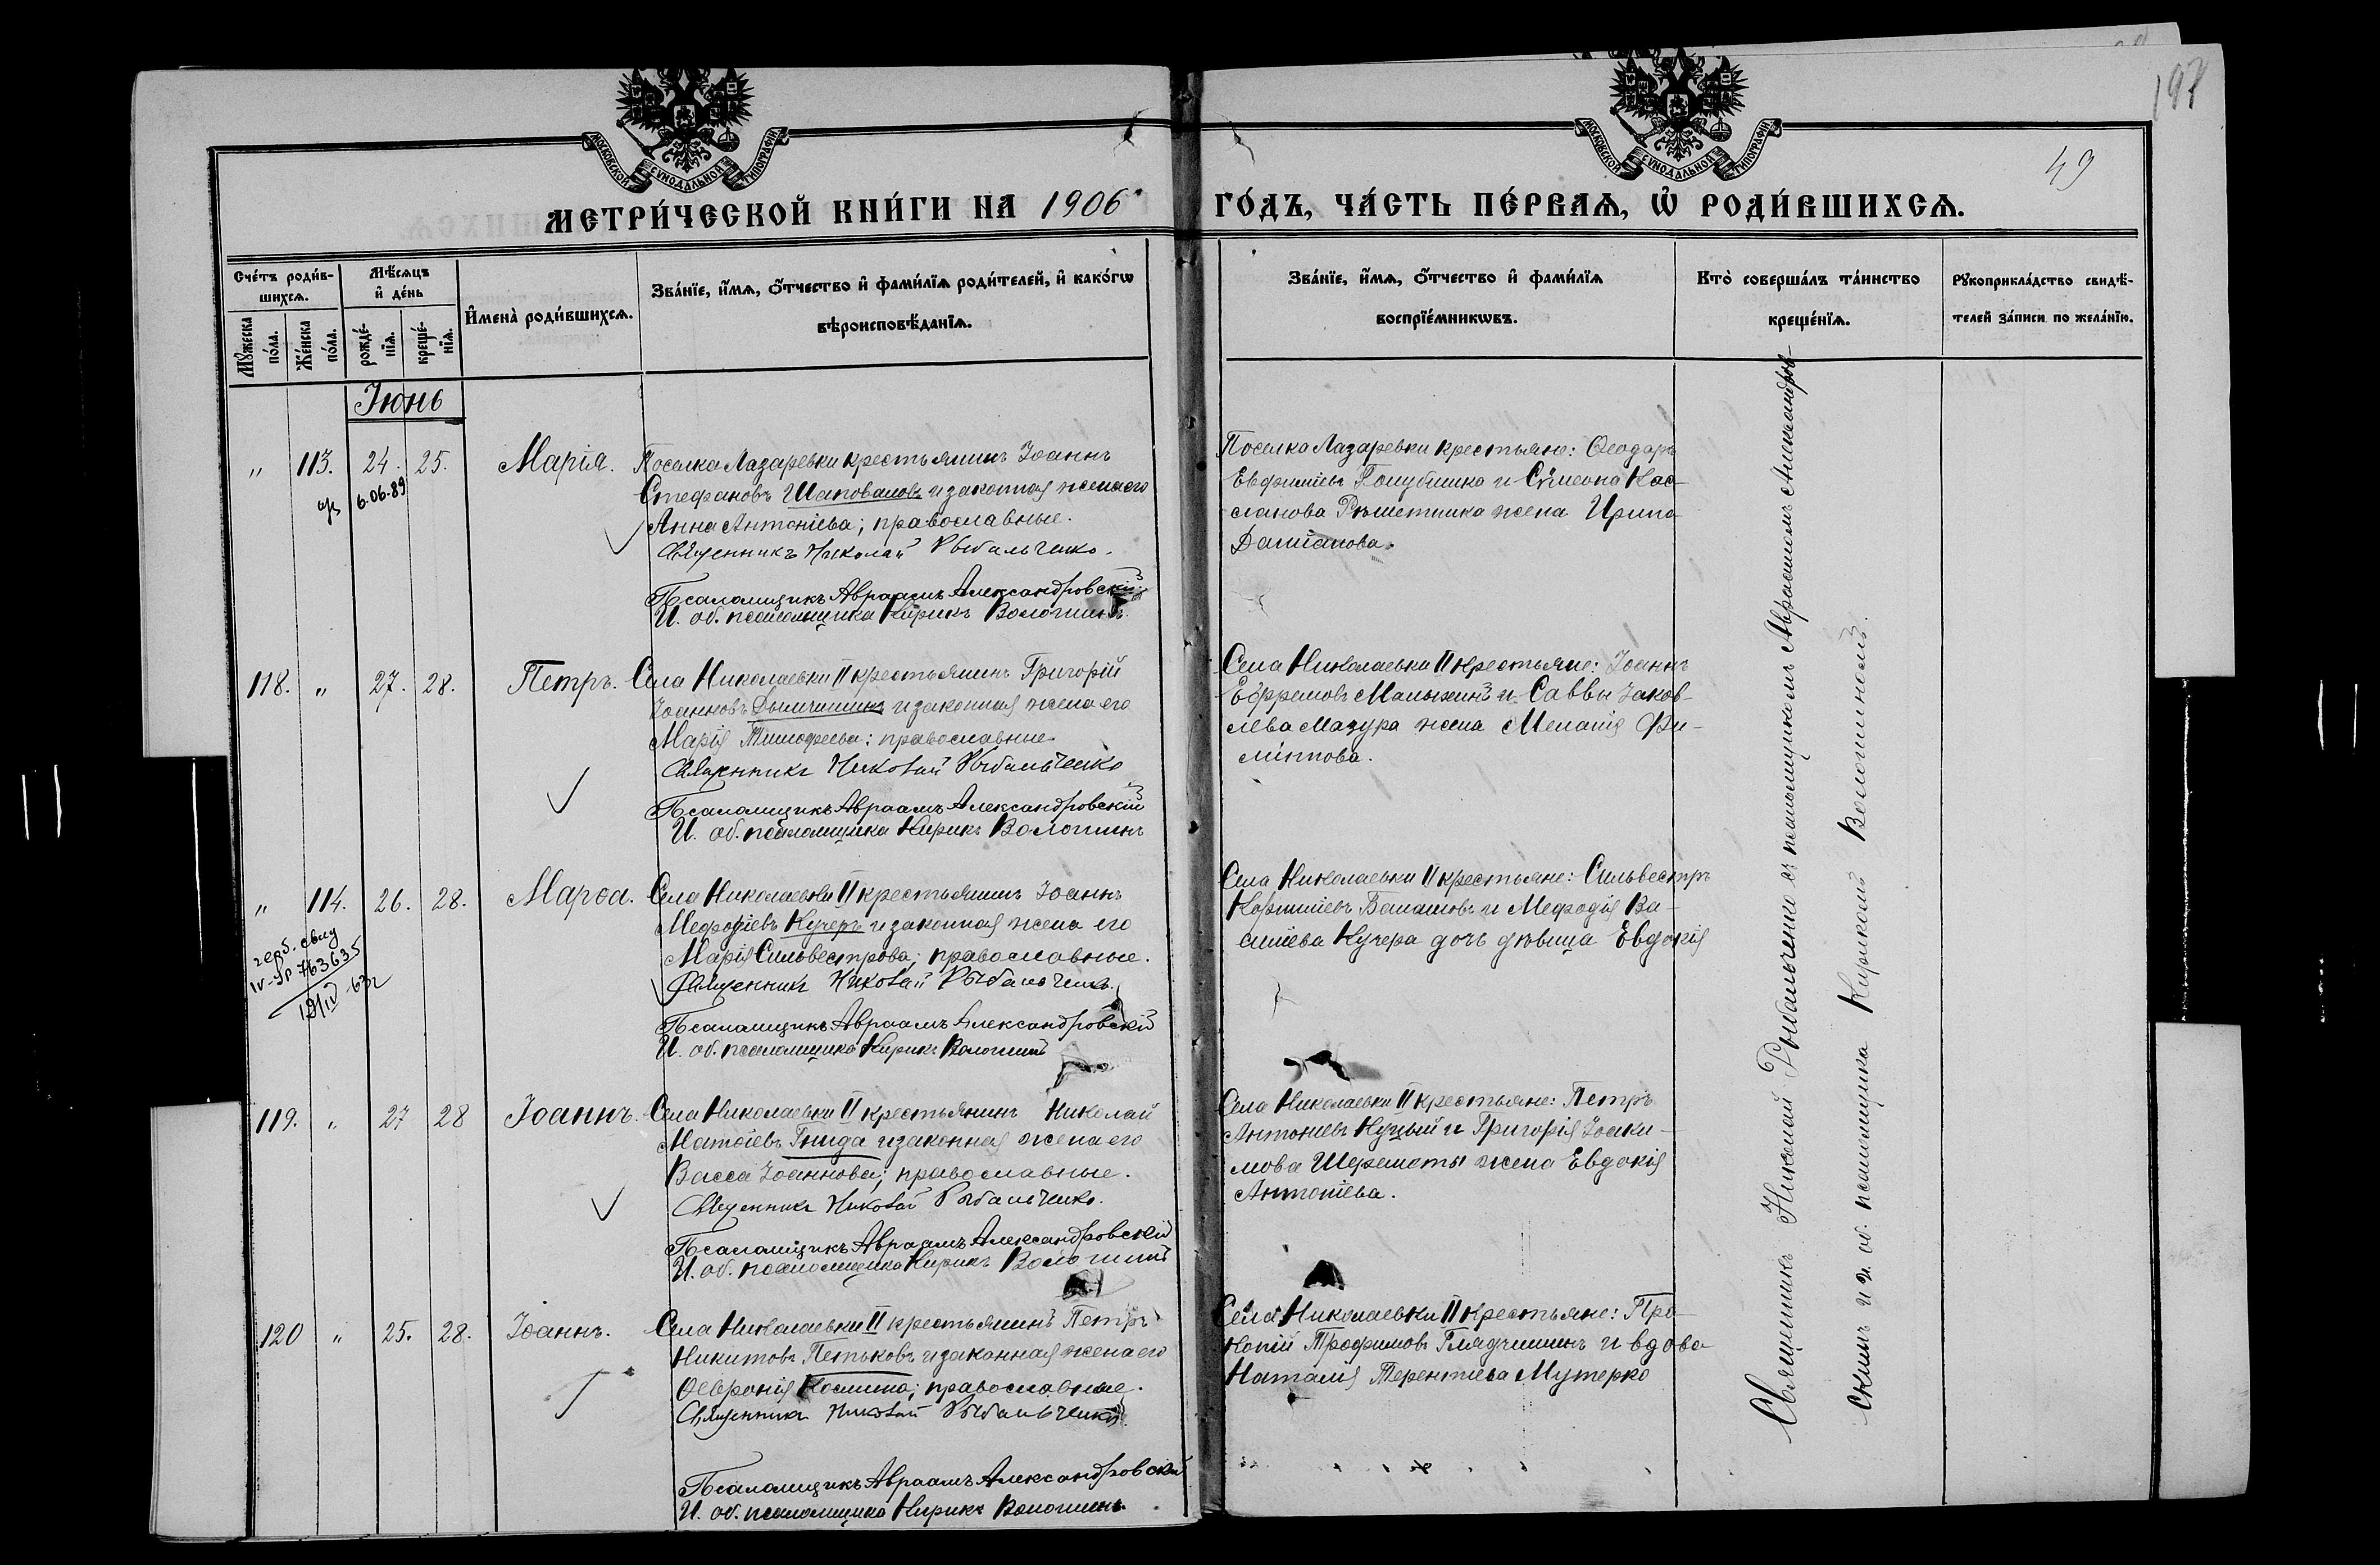 197
49
МОСКОВСКОЙ СѴНОДАЛЬНОЙ ТИПОГРАФІИ
МОСКОВСКОЙ СѴНОДАЛЬНОЙ ТИПОГРАФІИ
МЕТРИ́ЧЕСКОЙ КНИ́ГИ НА 1906
ГО́ДЪ, ЧА́СТЬ ПЕ́РВАѦ, Ѡ҆ РОДИ́ВШИХСѦ.
Сче́тъ роди́в-
шихсѧ.
Мꙋ́жеска по́ла.
Же́нска по́ла.
Мѣ́сѧцъ
и҆ де́нь
рожде́-
нїѧ.
креще́-
нїѧ.
И҆мена̀ роди́вшихсѧ.
Зва́нїе, и҆́мѧ, ѻ҆́тчество и҆ фами́лїѧ роди́телей, и҆ како́гѡ
вѣроисповѣ́данїѧ.
Зва́нїе, и҆́мѧ, ѻ҆́тчество и҆ фами́лїѧ
воспрїе́мникѡвъ.
Кто̀ соверша́лъ та́инство
креще́нїѧ.
Рꙋкоприкла́дство свидѣ́-
телей за́писи по жела́нїю.
Іюнь
„ 113. 24. 25. Марія.
6.06.89
Поселка Лазаревки крестьянинъ Іоаннъ
Стефановъ Шаповаловъ и законная жена его
Анна Антоніева; православные.
Священникъ Николай Рыбальченко.
Псаломщикъ Авраамъ Александровскій
И. об. псаломщика Кирикъ Вологинъ
Поселка Лазаревки крестьяне: Ѳеодоръ
Евфиміевъ Голубишка и Сѵмеона Кос-
Рѣшетника жена Ирина
Даміанова.
118. „ 27. 28. Петръ.
Села Николаевки II крестьянинъ Григорій
Іоанновъ и законная жена его
Марія Тимофеева; православные
Священникъ Николай Рыбальченко
Псаломщикъ Авраамъ Александровскій
И. об. псаломщика Кирикъ Вологинъ
Села Николаевки II крестьяне: Іоаннъ
Ефремовъ Малыхинъ и Саввы Іаков-
лева Мазура жена Меланія Фи-
„ 114. 26. 28. Марѳа.
герб. свид
IV-УР 763635
Села Николаевки II крестьянинъ Іоаннъ
Мефодіевъ Кучеръ и законная жена его
Марія Сильвестрова; православные.
Священникъ Николай Рыбальченко.
Псаломщикъ Авраамъ Александровскій
И. об. псаломщика Кирикъ Вологинъ
Села Николаевки II крестьяне: Сильвестръ
Корниліевъ и Мефодія Ва-
силіева Кучера дочь дѣвица Евдокія
119. „ 27 28 Іоаннъ.
Села Николаевки II крестьянинъ Николай
Матѳіевъ Гнида и законная жена его
Васса Іоаннова; православные.
Священникъ Николай Рыбальченко.
Псаломщикъ Авраамъ Александровскій
И. об. псаломщика Кирикъ Вологинъ
Села Николаевки II крестьяне: Петръ
Антоніевъ Куцый и Григорія Іоаки-
мова Шереметы жена Евдокія
Антоніева.
120 „ 25. 28. Іоаннъ.
Села Николаевки II крестьянинъ Петръ
Никитовъ Петьковъ и законная жена его
Ѳеѵронія Космина; православные.
Священникъ Николай Рыбальченко
Псаломщикъ Авраамъ Александровскій
И. об. псаломщика Кирикъ Вологинъ
Села Николаевки II крестьяне: Про-
копій Трофимовъ и вдова
Наталія Терентіева Мутерко
Священникъ Николай Рыбальченко съ псаломщикомъ Авраамомъ Александров-
скимъ и и. об. псаломщика Кирикомъ Вологинымъ.